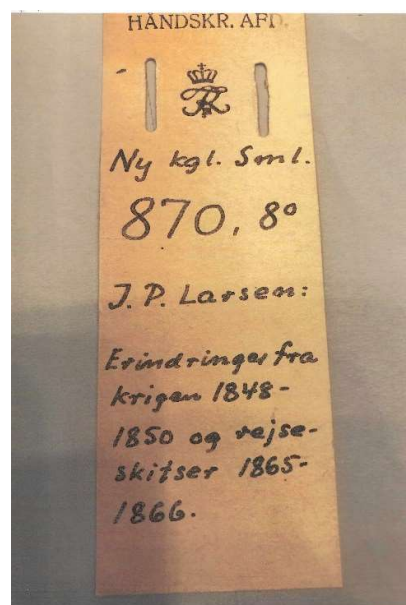 HÅNDSKR. AFD.
Ny kgl. Sml.
870, 8º
J. P. Larsen:
Erindringer fra
krigen 1848-
1850 og rejse-
skitser 1865-
1866.